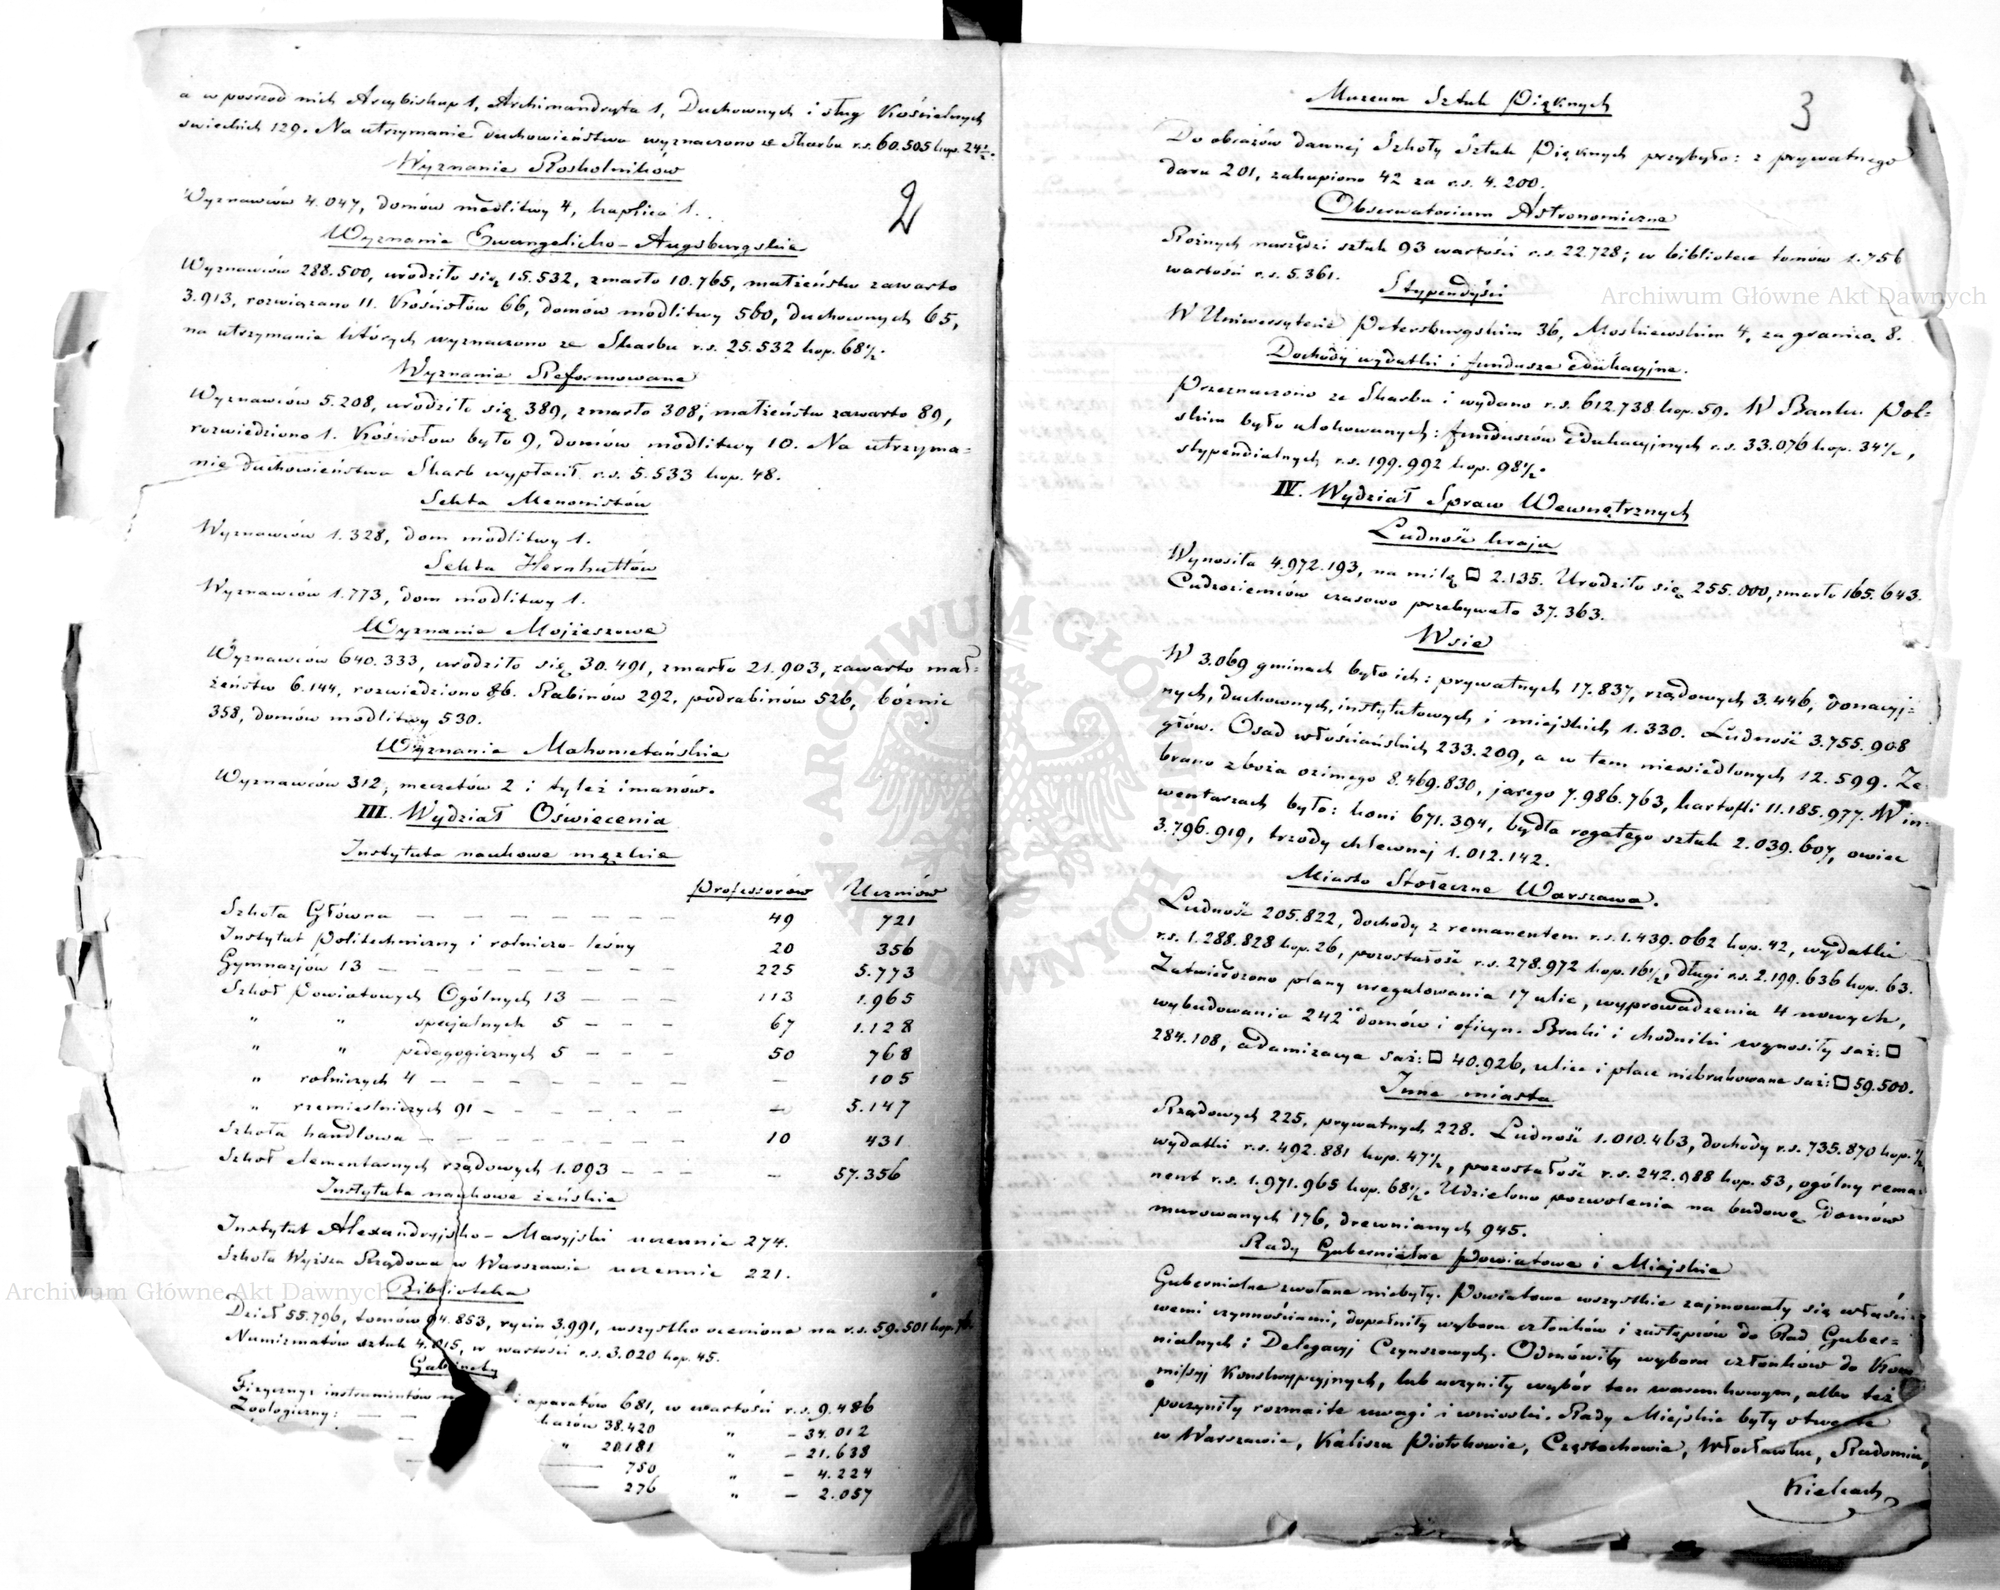 a w posrzod nich Arcybiskup 1, Archimandryta 1, Duchownych i sług Kościelnych
swieckich 129. Na utrzymanie duchowieństwa wyznaczono ze Skarbu r.s. 60.505 kop. 24½.
Wyznanie Roskolników
Wyznawców 4.047, domów modlitwy 4, kaplica 1.
2
Wyznanie Ewangelicko-Augsburgskie
Wyznawców 288.500, urodziło się 15.532, zmarło 10.765, małżeństw zawarto
3.913, rozwiązano 11. Kościołów 66, domów modlitwy 560, duchownych 65,
na utrzymanie których wyznaczono ze Skarbu r.s. 25.532 kop. 68½.
Wyznanie Reformowane
Wyznawców 5.208, urodziło się 389, zmarło 308, małżeństw zawarto 89,
rozwiedziono 1. Kościołow było 9, domów modlitwy 10. Na utrzyma=
nie duchowieństwa Skarb wypłacił r.s. 5.533 kop. 48.
Sekta Menonistów
Wyznawców 1.328, dom modlitwy 1.
Sekta Hernhuttów
Wyznawców 1.773, dom modlitwy 1.
Wyznanie Mojżeszowe
Wyznawców 640.333, urodziło się 30.491, zmarło 21.903, zawarto mał=
żeństw 6.144, rozwiedziono 86. Rabinów 292, podrabinów 526, bóżnic
358, domów modlitwy 530.
Wyznanie Mahometańskie
Wyznawców 312, meczetów 2 i tyleż imanów.
III. Wydział Oświecenia
Instytuta naukowe męzkie
Professorów Uczniów
Szkoła Główna — — — — — — — 49 721
Instytut Politechniczny i rolniczo-leśny 20 356
Gymnazjów 13 — — — — — — — — 225 5.773
Szkoł Powiatowych Ogólnych 13 — — — 113 1.965
" " specjalnych 5 — — — 67 1.128
" " pedagogicznych 5 — — — 50 768
" rolniczych 4 — — — — — — — — 105
" rzemieślniczych 91 — — — — — — — 5.147
Szkoła handlowa — — — — — — — 10 431
Szkoł elementarnych rządowych 1.093 — — — — 57.356
Instytuta naukowe żeńskie
Instytut Alexandryjsko-Maryjski uczennic 274.
Szkoła Wyższa Rządowa w Warszawie uczennic 221.
Biblioteka
Dzieł 55.796, tomów 94.853, rycin 3.991, wszystko ocenione na r.s. 59.501 kop.
Numizmatów sztuk 4.015, w wartości r.s. 3.020 kop. 45.
Gabinety
Fizyczny: instrumentów i aparatów 681, w wartości r.s. 9.486
Zoologiczny: — — kazów 38.420 " — 34.012
— " 20.181 " — 21.638
— — 750 " — 4.224
— 276 " — 2.057
3
Muzeum Sztuk Pięknych
Do obrazów dawnej Szkoły Sztuk Pięknych przybyło: z prywatnego
daru 201, zakupiono 42 za r.s. 4.200.
Obserwatorium Astronomiczne
Rożnych narzędzi sztuk 93 wartości r.s. 22.728; w bibliotece tomów 1.756
wartości r.s. 5.361.
Stypendyści
W Uniwersytecie Petersburgskim 36, Moskiewskim 4, za granicą 8.
Dochody wydatki i fundusze edukacyjne.
Przeznaczono ze Skarbu i wydano r.s. 612.738 kop. 59. W Banku Pol=
skim było ulokowanych: funduszów edukacyjnych r.s. 33.076 kop. 34½,
stypendialnych r.s. 199.992 kop. 98½.
IV. Wydział Spraw Wewnętrznych
Ludność kraju
Wynosiła 4.972.193, na milę □ 2.135. Urodziło się 255.000, zmarło 165.643.
Cudzoziemców czasowo przebywało 37.363.
Wsie
W 3.069 gminach było ich: prywatnych 17.837, rządowych 3.446, donacyj=
nych, duchownych, instytutowych i miejskich 1.330. Ludność 3.755.908
głów. Osad włościańskich 233.209, a w tem niesiedlonych 12.599. Ze
brano zboża ozimego 8.469.830, jarego 7.986.763, kartofli 11.185.977. W in=
wentarzach było: koni 671.394, bydła rogatego sztuk 2.039.607, owiec
3.796.919, trzody chlewnej 1.012.142.
Miasto Stołeczne Warszawa.
Ludność 205.822, dochody z remanentem r.s. 1.439.062 kop. 42, wydatki
r.s. 1.288.828 kop. 26, pozostałość r.s. 278.972 kop. 16½, długi r.s. 2.199.636 kop. 63.
Zatwierdzono plany uregulowania 17 ulic, wyprowadzenia 4 nowych,
wybudowania 242 domów i oficyn. Bruki i chodniki wynosiły saż: □
284.108, adamizacya saż: □ 40.926, ulice i place niebrukowane saż: □ 59.500.
Inne miasta
Rządowych 225, prywatnych 228. Ludność 1.010.463, dochody r.s. 735.870 kop. ½,
wydatki r.s. 492.881 kop. 47½, pozostałość r.s. 242.988 kop. 53, ogólny rema=
nent r.s. 1.971.965 kop. 68½. Udzielono pozwolenia na budowę domów
murowanych 176, drewnianych 945.
Rady Gubernialne Powiatowe i Miejskie
Gubernialne zwołane niebyły. Powiatowe wszystkie zajmowały się właści=
wemi czynnościami, dopełniły wyboru członków i zastępców do Rad Guber=
nialnych i Delegacyj Czynszowych. Odmówiły wyboru członków do Kom
missyj Konskrypcyjnych, lub uczyniły wybór ten warunkowym, albo też
poczyniły rozmaite uwagi i wnioski. Rady Miejskie były otwarte
w Warszawie, Kaliszu Piotrkowie, Częstochowie, Włocławku, Radomiu,
Kielcach
Archiwum Główne Akt Dawnych
Archiwum Główne Akt Dawnych
ARCHIWUM GŁÓWNE AKT DAWNYCH